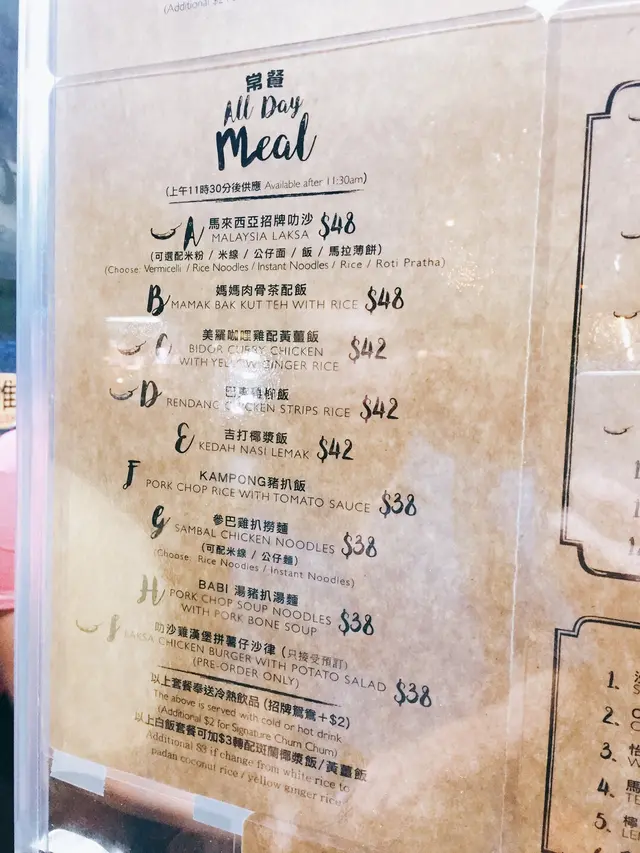 (Additional $2
常餐
All Day
Meal
(上午11時30分後供應 Available after 11:30am)
A 馬來西亞招牌叻沙 $48
MALAYSIA LAKSA
(可選配米粉 / 米線 / 公仔面 / 飯 / 馬拉薄餅)
(Choose: Vermicelli / Rice Noodles / Instant Noodles / Rice / Roti Pratha)
B 媽媽肉骨茶配飯 $48
MAMAK BAK KUT TEH WITH RICE
C 美羅咖哩雞配黃薑飯 $42
BIDOR CURRY CHICKEN
WITH YELLOW GINGER RICE
D 巴東雞柳飯 $42
RENDANG CHICKEN STRIPS RICE
E 吉打椰漿飯 $42
KEDAH NASI LEMAK
F KAMPONG豬扒飯 $38
PORK CHOP RICE WITH TOMATO SAUCE
G 參巴雞扒撈麵 $38
SAMBAL CHICKEN NOODLES
(可配米線 / 公仔麵)
(Choose: Rice Noodles / Instant Noodles)
H BABI 湯豬扒湯麵 $38
PORK CHOP SOUP NOODLES
WITH PORK BONE SOUP
叻沙雞漢堡拼薯仔沙律 (只接受預訂) $38
LAKSA CHICKEN BURGER WITH POTATO SALAD
(PRE-ORDER ONLY)
以上套餐奉送冷熱飲品 (招牌鴛鴦+$2)
The above is served with cold or hot drink
(Additional $2 for Signature Chum Chum)
以上白飯套餐可加$3轉配斑蘭椰漿飯/黃薑飯
Additional $3 if change from white rice to
padan coconut rice / yellow ginger rice
1.
2.
3.
4.
5.